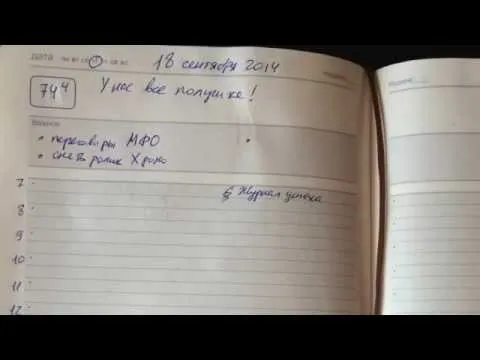 дата пн вт ср ч п сб вс 18 сентября 2014
74⁴ У нас все получиться!
Важное
• переговоры МФО •
• снять ролик Хроно
7 § Журнал успеха
8
9
10
11
12